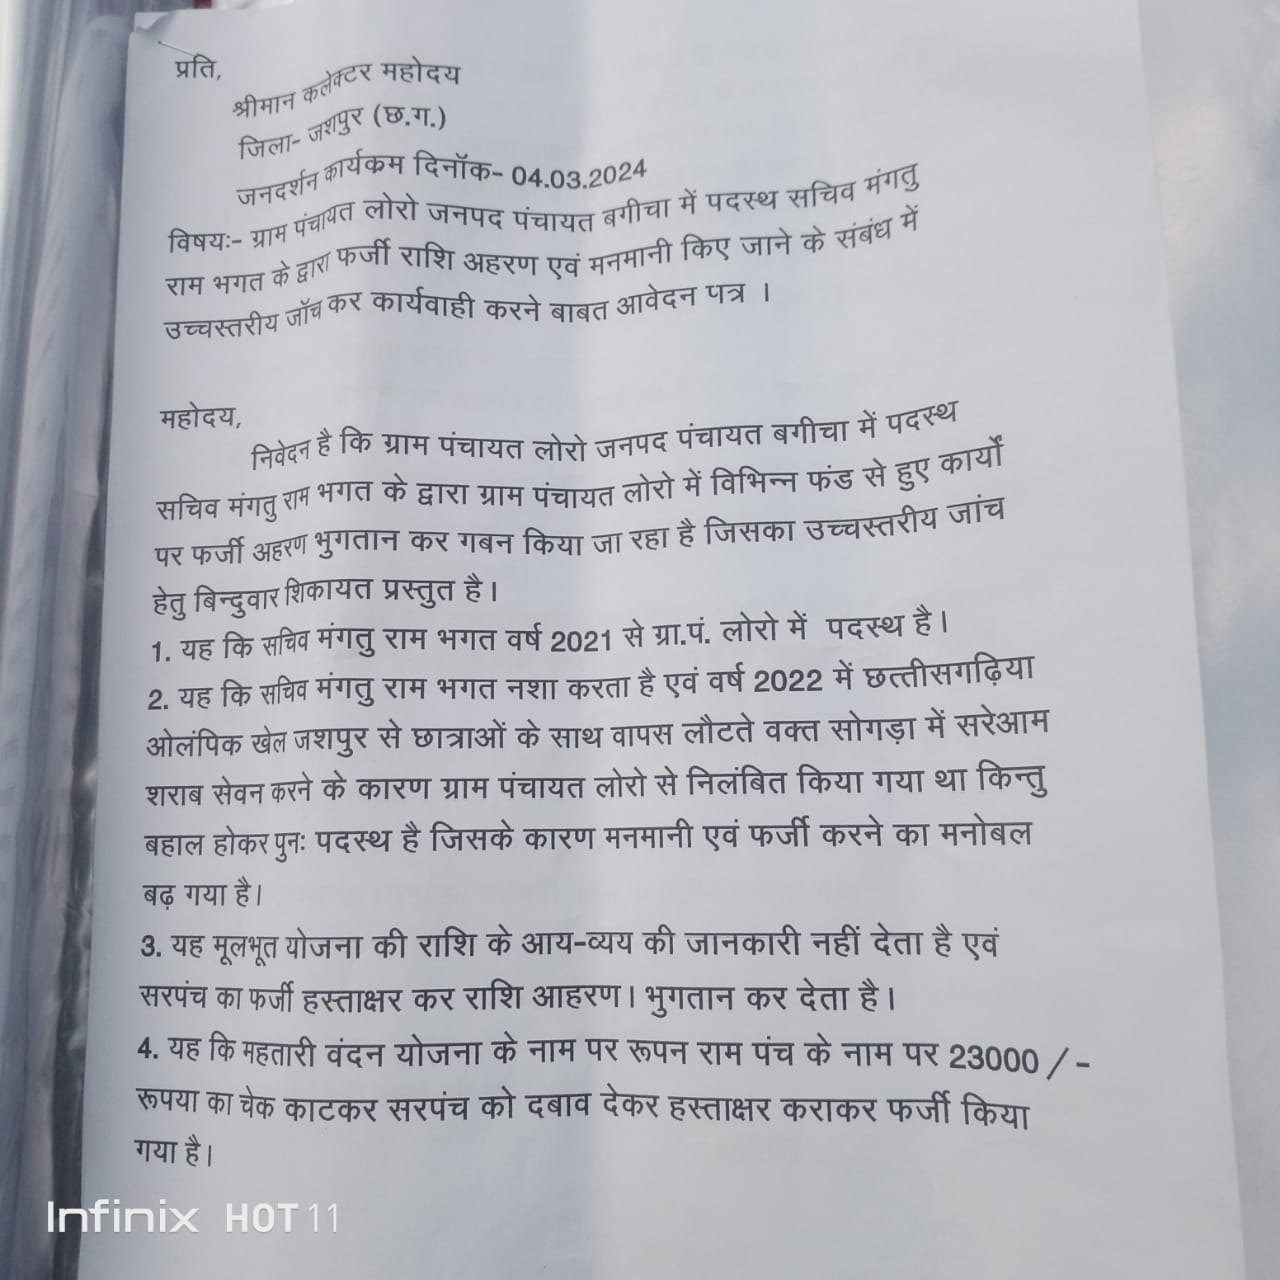 प्रति,
श्रीमान कलेक्टर महोदय
जिला- जशपुर (छ.ग.)
जनदर्शन कार्यकम दिनॉक- 04.03.2024
विषयः- ग्राम पंचायत लोरो जनपद पंचायत बगीचा में पदस्थ सचिव मंगतु
राम भगत के द्वारा फर्जी राशि अहरण एवं मनमानी किए जाने के संबंध में
उच्चस्तरीय जॉच कर कार्यवाही करने बाबत आवेदन पत्र ।
महोदय,
निवेदन है कि ग्राम पंचायत लोरो जनपद पंचायत बगीचा में पदस्थ
सचिव मंगतु राम भगत के द्वारा ग्राम पंचायत लोरो में विभिन्न फंड से हुए कार्यों
पर फर्जी अहरण भुगतान कर गबन किया जा रहा है जिसका उच्चस्तरीय जांच
हेतु बिन्दुवार शिकायत प्रस्तुत है।
1. यह कि सचिव मंगतु राम भगत वर्ष 2021 से ग्रा.पं. लोरो में पदस्थ है।
2. यह कि सचिव मंगतु राम भगत नशा करता है एवं वर्ष 2022 में छत्तीसगढ़िया
ओलंपिक खेल जशपुर से छात्राओं के साथ वापस लौटते वक्त सोगड़ा में सरेआम
शराब सेवन करने के कारण ग्राम पंचायत लोरो से निलंबित किया गया था किन्तु
बहाल होकर पुनः पदस्थ है जिसके कारण मनमानी एवं फर्जी करने का मनोबल
बढ़ गया है।
3. यह मूलभूत योजना की राशि के आय-व्यय की जानकारी नहीं देता है एवं
सरपंच का फर्जी हस्ताक्षर कर राशि आहरण। भुगतान कर देता है।
4. यह कि महतारी वंदन योजना के नाम पर रूपन राम पंच के नाम पर 23000 / -
रूपया का चेक काटकर सरपंच को दबाव देकर हस्ताक्षर कराकर फर्जी किया
गया है।
Infinix HOT 11